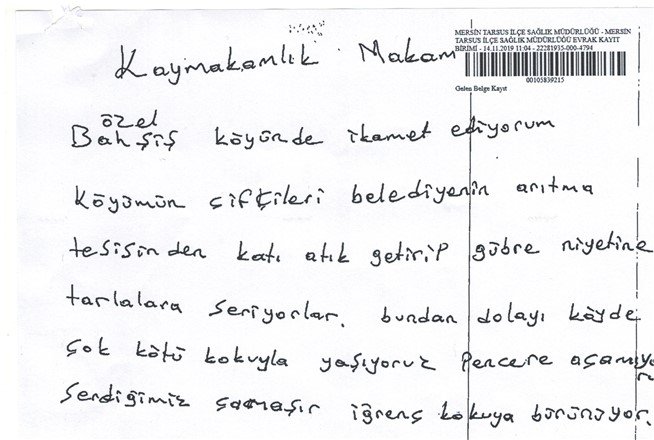 MERSİN TARSUS İLÇE SAĞLIK MÜDÜRLÜĞÜ - MERSİN
TARSUS İLÇE SAĞLIK MÜDÜRLÜĞÜ EVRAK KAYIT
BİRİMİ - 14.11.2019 11:04 - 22281935-000-4794
00105839215
Gelen Belge Kayıt
Kaymakamlık Makam
özel
Bahşiş köyünde ikamet ediyorum
Köyümün çifçileri belediyenin arıtma
tesisinden katı atık getirip gübre niyetine
tarlalara seriyorlar, bundan dolayı köyde
çok kötü kokuyla yaşıyoruz Pencere açamıyo
ru
Serdiğimiz çamaşır iğrenç kokuya bürünüyor.